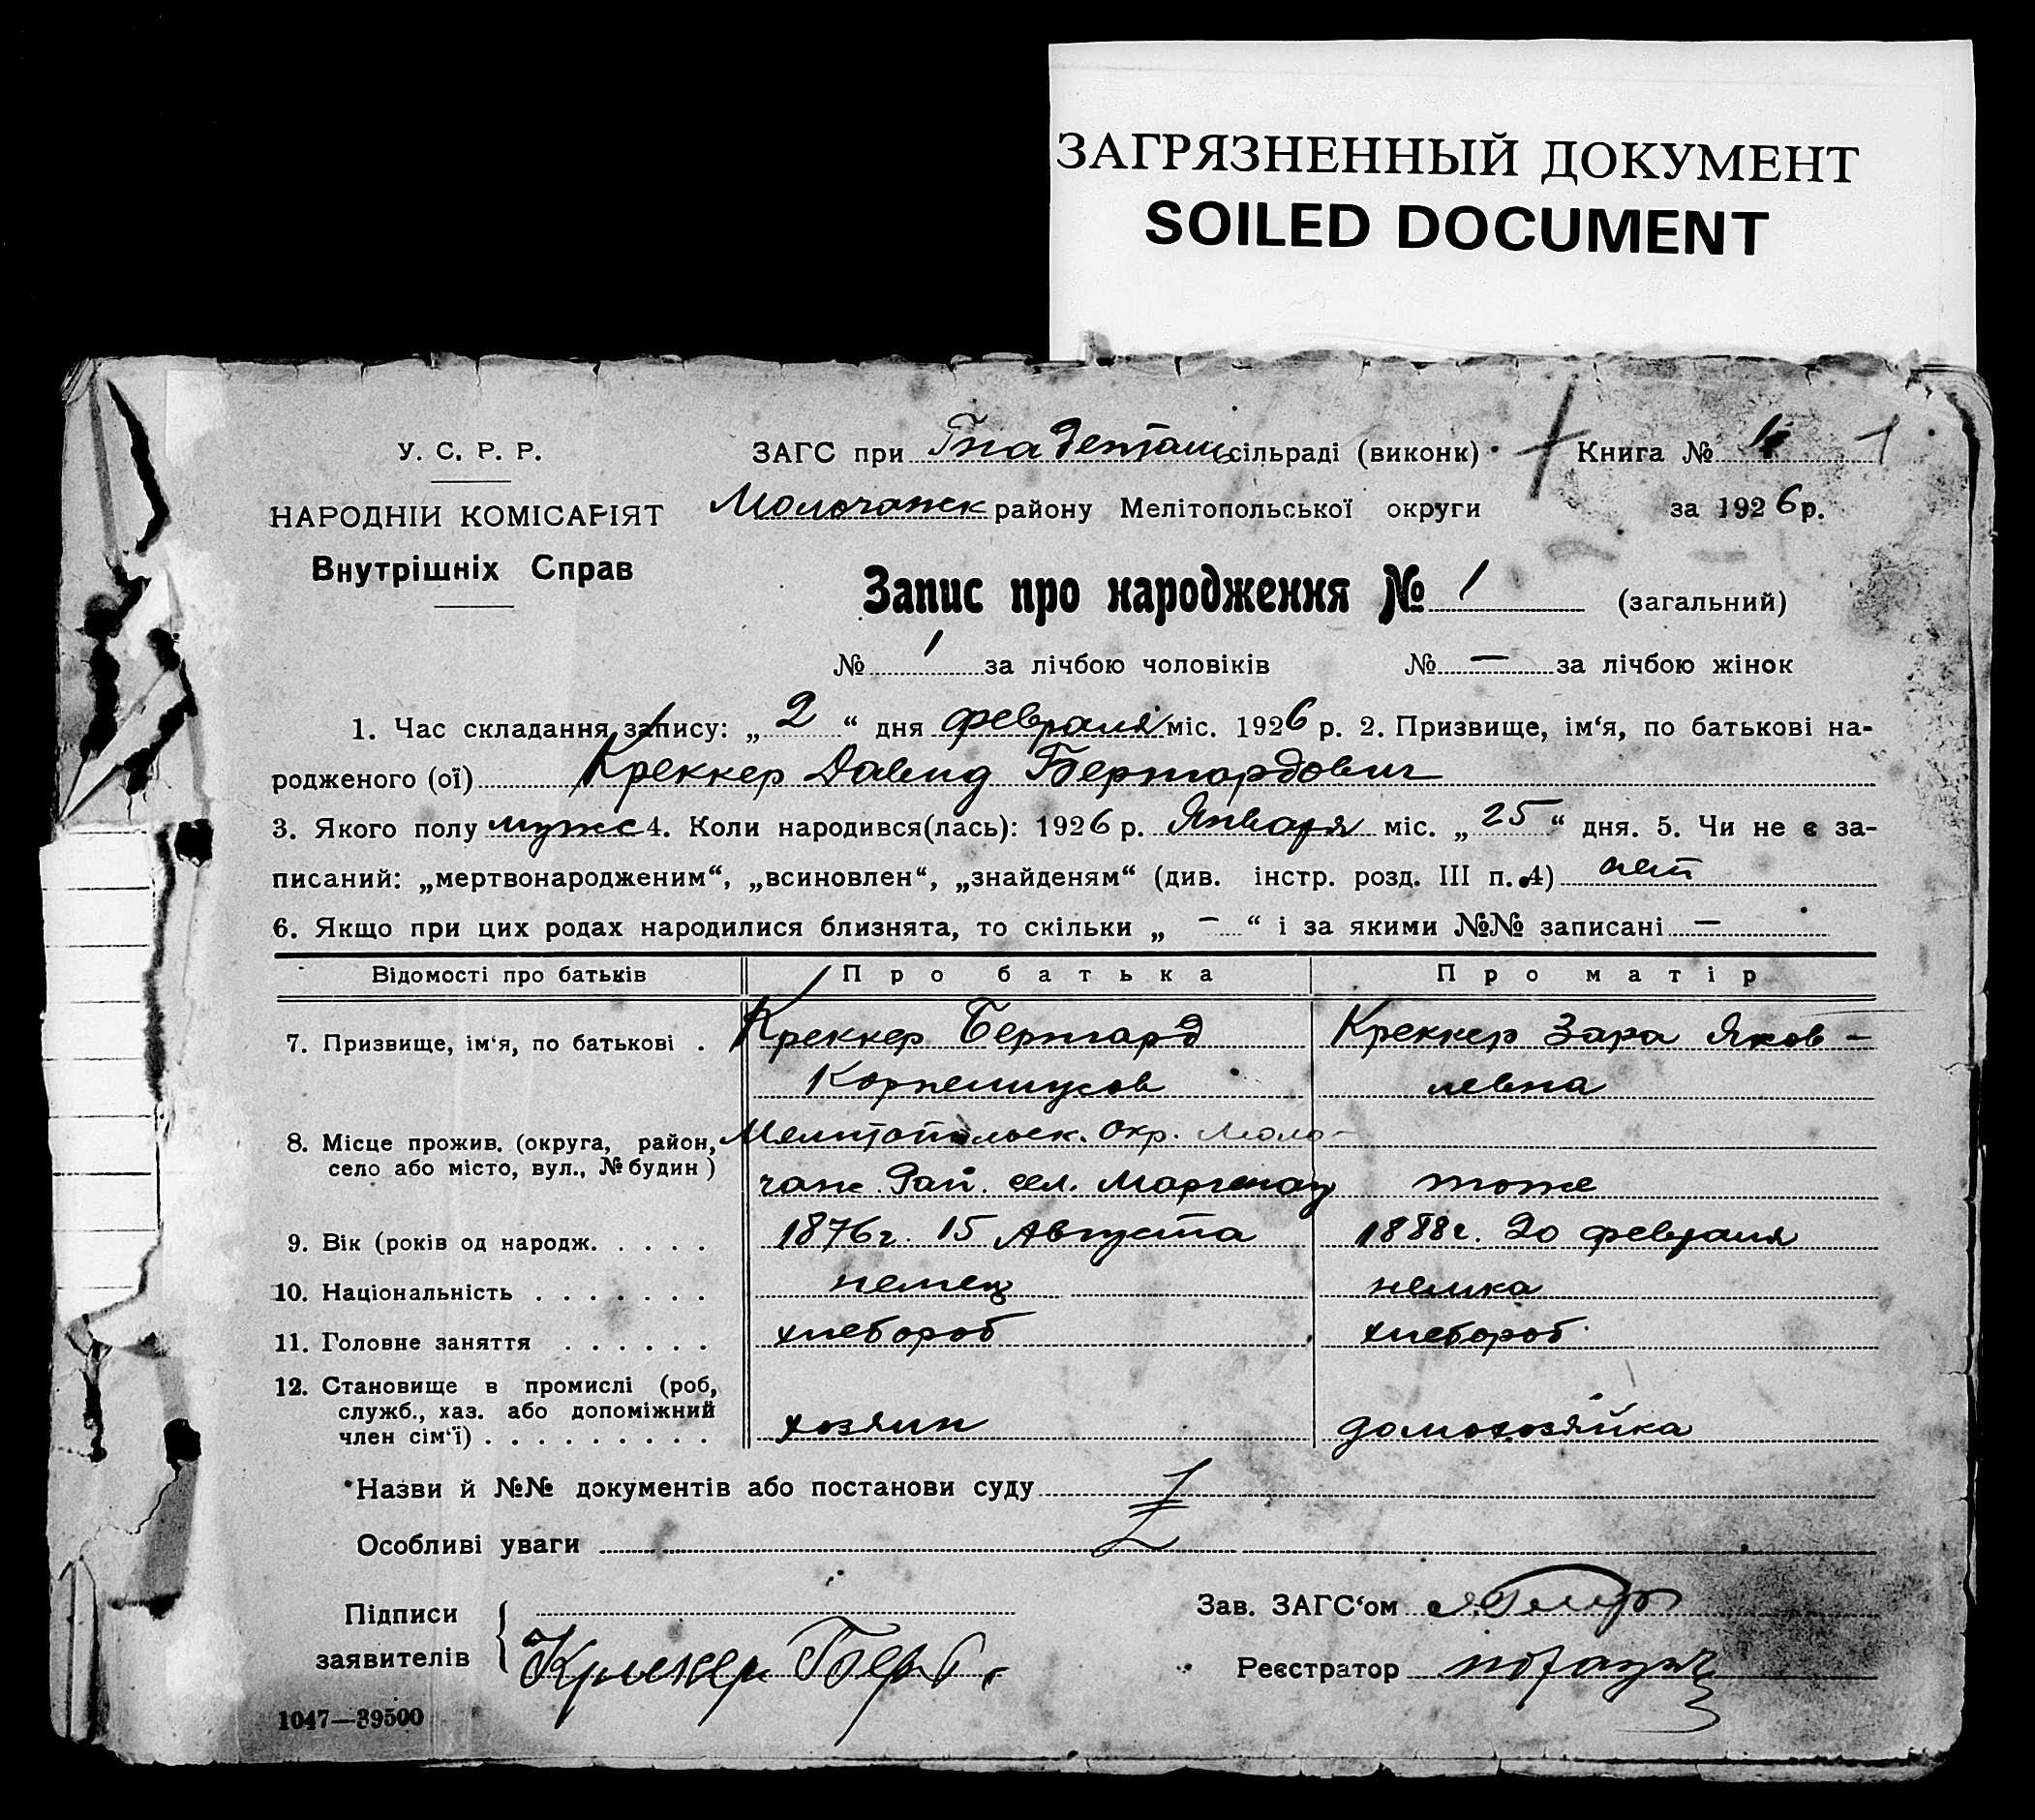 ЗАГРЯЗНЕННЫЙ ДОКУМЕНТ
SOILED DOCUMENT
У. С. Р. Р.
НАРОДНІЙ КОМІСАРІЯТ
Внутрішніх Справ
ЗАГС при Гнаденталь сільраді (виконк)
Молочанск району Мелітопольської округи
Книга № 1
за 1926 р.
Запис про народження № 1 (загальний)
№ 1 за лічбою чоловіків № — за лічбою жінок
1. Час складання запису: „ 2 “ дня февраля міс. 1926 р. 2. Призвище, ім‘я, по батькові на-
родженого (ої) Креккер Давид Бернгардович
3. Якого полу мужс 4. Коли народився(лась): 1926 р. Января міс. „ 25 “ дня. 5. Чи не є за-
писаний: „мертвонародженим“, „всиновлен“, „знайденям“ (див. інстр. розд. III п. 4) нет
6. Якщо при цих родах народилися близнята, то скільки „ — “ і за якими №№ записані —
Відомості про батьків Про батька Про матір
7. Призвище, ім‘я, по батькові . Креккер Бернгард Креккер Зара Яков-
Корнелиусов левна
8. Місце прожив. (округа, район, Мелитопольск. Окр. Моло-
село або місто, вул., № будин ) чанс. Рай. сел. Маргенау тоже
9. Вік (років од народж. . . . . 1876 г. 15 Августа 1888 г. 20 февраля
10. Національність . . . . . . . немец немка
11. Головне заняття . . . . . . хлебороб хлебороб
12. Становище в промислі (роб,
служб., хаз. або допоміжний
член сім‘ї) . . . . . . . . . хозяин домохозяйка
Назви й №№ документів або постанови суду
Особливі уваги
Підписи
заявителів
Креккер Берг.
Зав. ЗАГС‘ом
Реєстратор
1047—39500